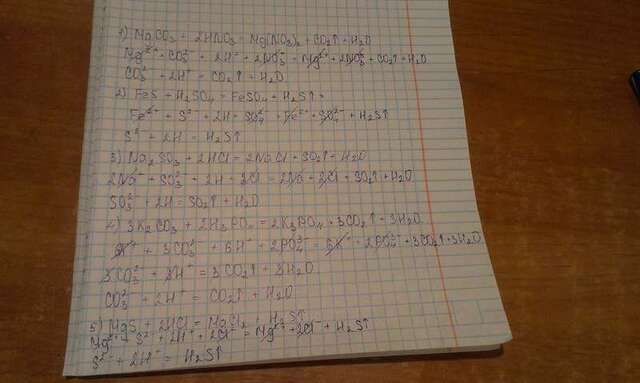 1) MgCO3 + 2HNO3 = Mg(NO3)2 + CO2↑ + H2O
Mg²⁺ + CO3²⁻ + 2H⁺ + 2NO3⁻ = Mg²⁺ + 2NO3⁻ + CO2↑ + H2O
CO3²⁻ + 2H⁺ = CO2↑ + H2O
2) FeS + H2SO4 = FeSO4 + H2S↑
Fe²⁺ + S²⁻ + 2H⁺ SO4²⁻ = Fe²⁺ + SO4²⁻ + H2S↑
S²⁻ + 2H⁺ = H2S↑
3) Na2SO3 + 2HCl = 2NaCl + SO2↑ + H2O
2Na⁺ + SO3²⁻ + 2H + 2Cl = 2Na + 2Cl + SO2↑ + H2O
SO3²⁻ + 2H = SO2↑ + H2O
4) 3K2CO3 + 2H3PO4 = 2K3PO4 + 3CO2↑ + 3H2O
6K⁺ + 3CO3²⁻ + 6H⁺ + 2PO4³⁻ = 6K⁺ + 2PO4³⁻ + 3CO2↑ + 3H2O
3CO3²⁻ + 6H⁺ = 3CO2↑ + 3H2O
CO3²⁻ + 2H⁺ = CO2↑ + H2O
5) MgS + 2HCl = MgCl2 + H2S↑
Mg²⁺ + S²⁻ + 2H⁺ + 2Cl⁻ = Mg²⁺ + 2Cl⁻ + H2S↑
S²⁻ + 2H⁺ = H2S↑